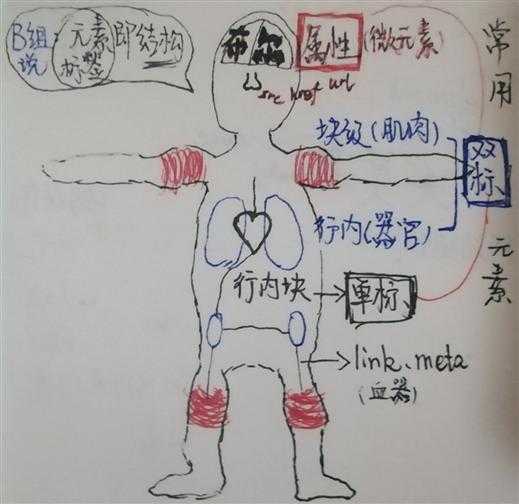 B组说:
元素标签
即结松
布尔
属性(微元素)
src href url
常用元素
块级(肌肉)
双标、
行内(器官)
行内块→单标、
→link、meta
(血器)